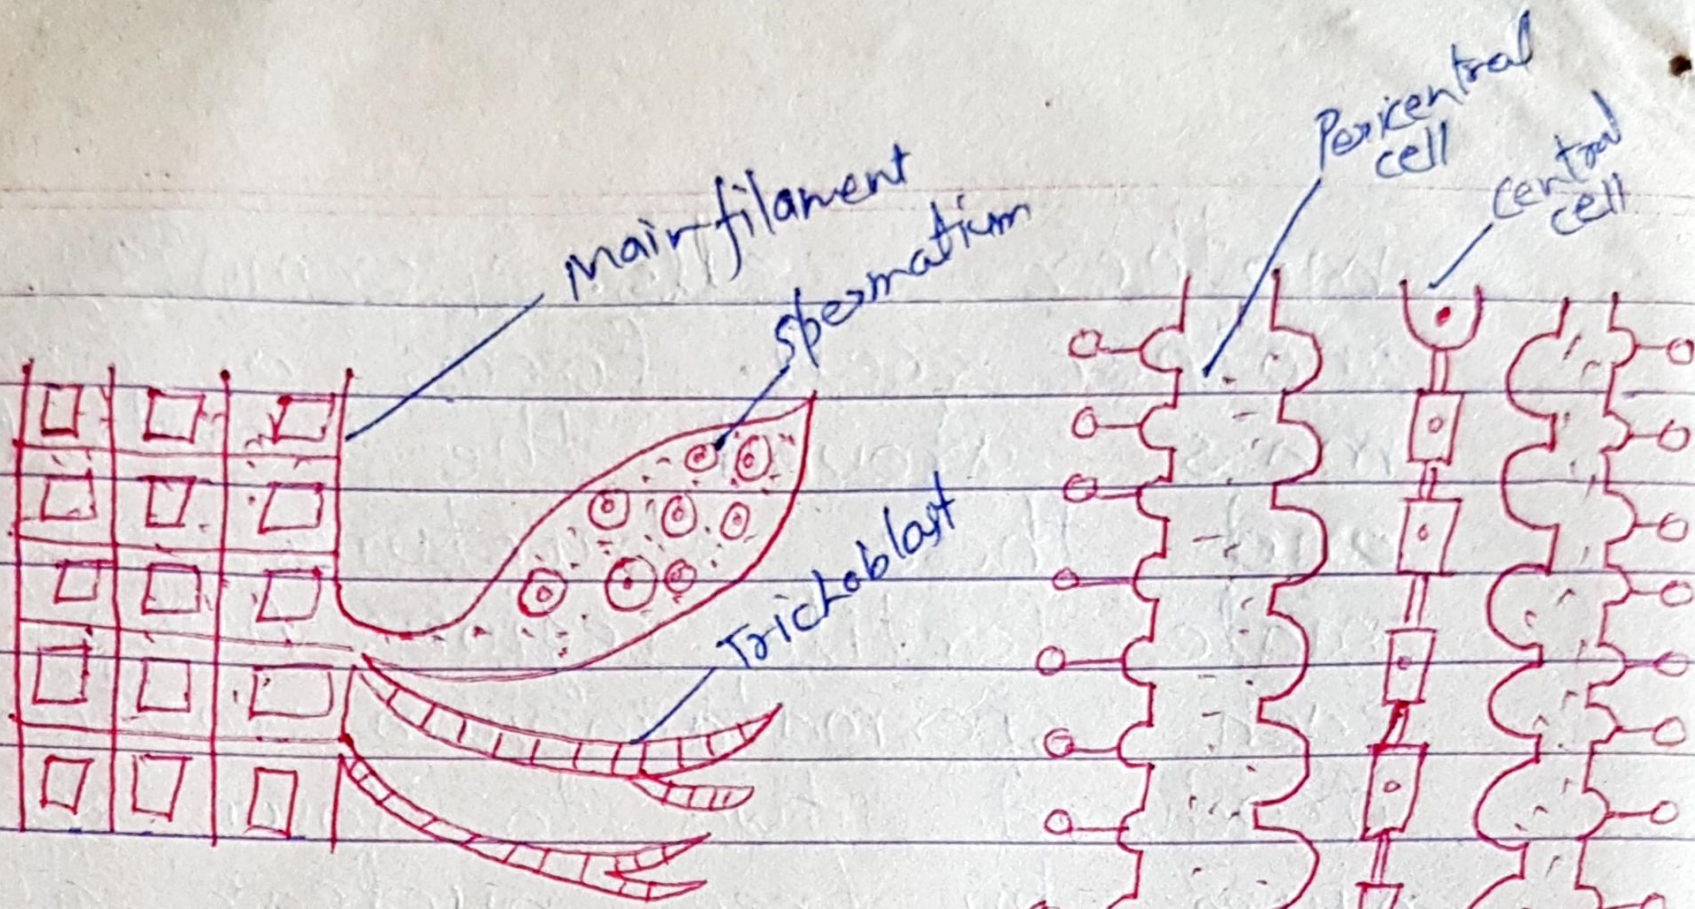 Main filament
Spermatium
Trichoblast
Pericentral
cell
central
cell